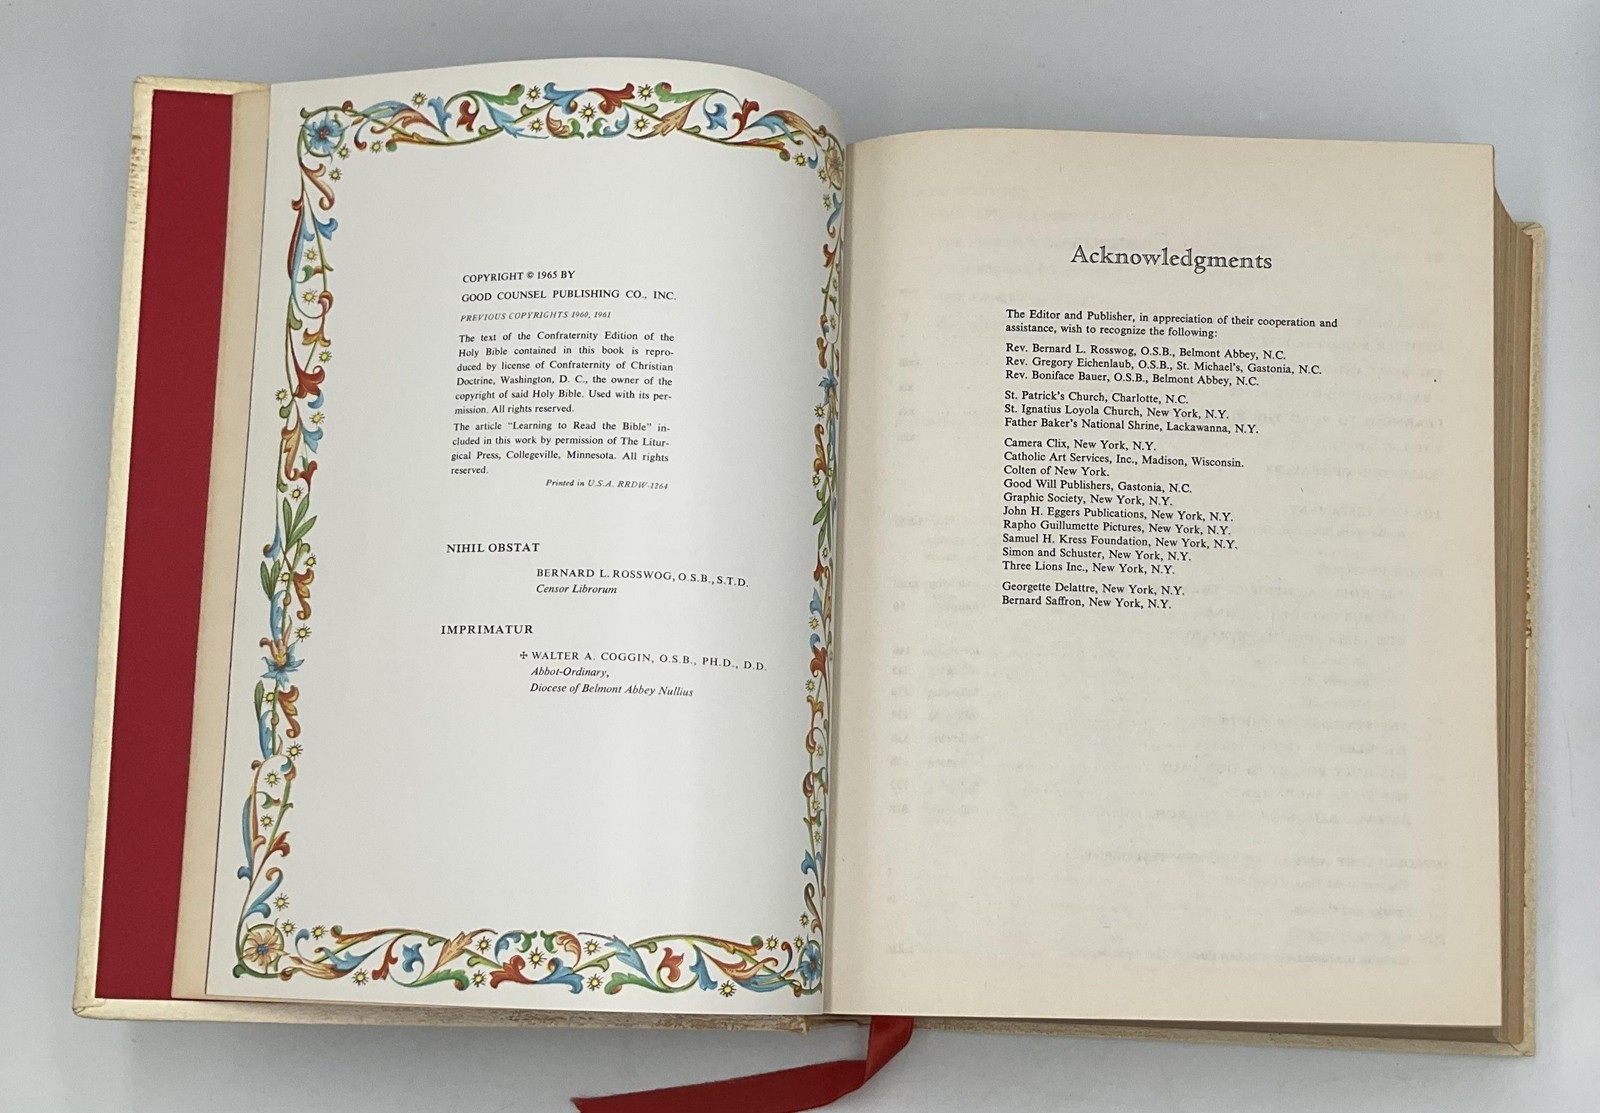 COPYRIGHT © 1965 BY
GOOD COUNSEL PUBLISHING CO., INC.
PREVIOUS COPYRIGHTS 1960, 1961
The text of the Confraternity Edition of the
Holy Bible contained in this book is repro-
duced by license of Confraternity of Christian
Doctrine, Washington, D. C., the owner of the
copyright of said Holy Bible. Used with its per-
mission. All rights reserved.
The article "Learning to Read the Bible" in-
cluded in this work by permission of The Litur-
gical Press, Collegeville, Minnesota. All rights
reserved.
Printed in U.S.A. RRDW-1264
NIHIL OBSTAT
BERNARD L. ROSSWOG, O.S.B., S.T.D.
Censor Librorum
IMPRIMATUR
✣ WALTER A. COGGIN, O.S.B., PH.D., D.D.
Abbot-Ordinary,
Diocese of Belmont Abbey Nullius
Acknowledgments
The Editor and Publisher, in appreciation of their cooperation and
assistance, wish to recognize the following:
Rev. Bernard L. Rosswog, O.S.B., Belmont Abbey, N.C.
Rev. Gregory Eichenlaub, O.S.B., St. Michael's, Gastonia, N.C.
Rev. Boniface Bauer, O.S.B., Belmont Abbey, N.C.
St. Patrick's Church, Charlotte, N.C.
St. Ignatius Loyola Church, New York, N.Y.
Father Baker's National Shrine, Lackawanna, N.Y.
Camera Clix, New York, N.Y.
Catholic Art Services, Inc., Madison, Wisconsin.
Colten of New York.
Good Will Publishers, Gastonia, N.C.
Graphic Society, New York, N.Y.
John H. Eggers Publications, New York, N.Y.
Rapho Guillumette Pictures, New York, N.Y.
Samuel H. Kress Foundation, New York, N.Y.
Simon and Schuster, New York, N.Y.
Three Lions Inc., New York, N.Y.
Georgette Delattre, New York, N.Y.
Bernard Saffron, New York, N.Y.